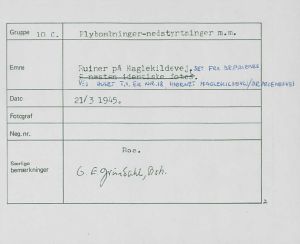 Gruppe 10 C. Flybombninger-nedstyrtninger m.m.
Emne Ruiner på Maglekildevej, SET FRA
2 næsten identiske fotos.
VED HUSET T.V. ER NR. 18 HJØRNET MAGLEKILDEVEJ/
Dato 21/3 1945.
Fotograf
Neg. nr.
Roe.
Særlige
bemærkninger G. E. Grøndahl, Rch.